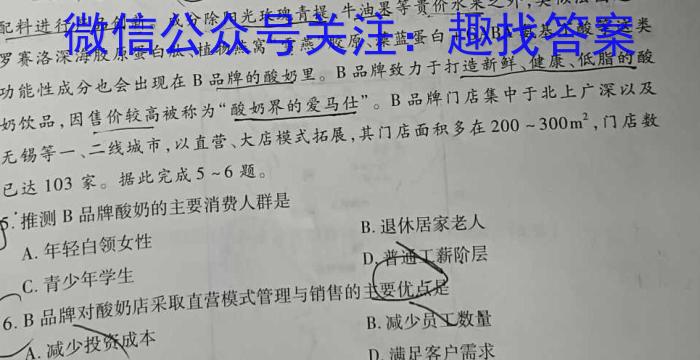 配料进行
成分除阳光玫瑰青提、牛油果等贵价水果之外
微信公众号关注：趣找答案
罗赛洛深海胶原蛋白肽、植物燕窝
功能性成分也会出现在 B 品牌的酸奶里。B 品牌致力于打造新鲜、健康、低脂的酸
奶饮品，因售价较高被称为“酸奶界的爱马仕”。B 品牌门店集中于北上广深以及
无锡等一、二线城市，以直营、大店模式拓展，其门店面积多在 200～300m²，门店数
已达 103 家。据此完成 5～6 题。
5. 推测 B 品牌酸奶的主要消费人群是
A. 年轻白领女性 B. 退休居家老人
C. 青少年学生 D. 普通工薪阶层
6. B 品牌对酸奶店采取直营模式管理与销售的主要优点是
A. 减少投资成本 B. 减少员工数量
D. 满足客户需求